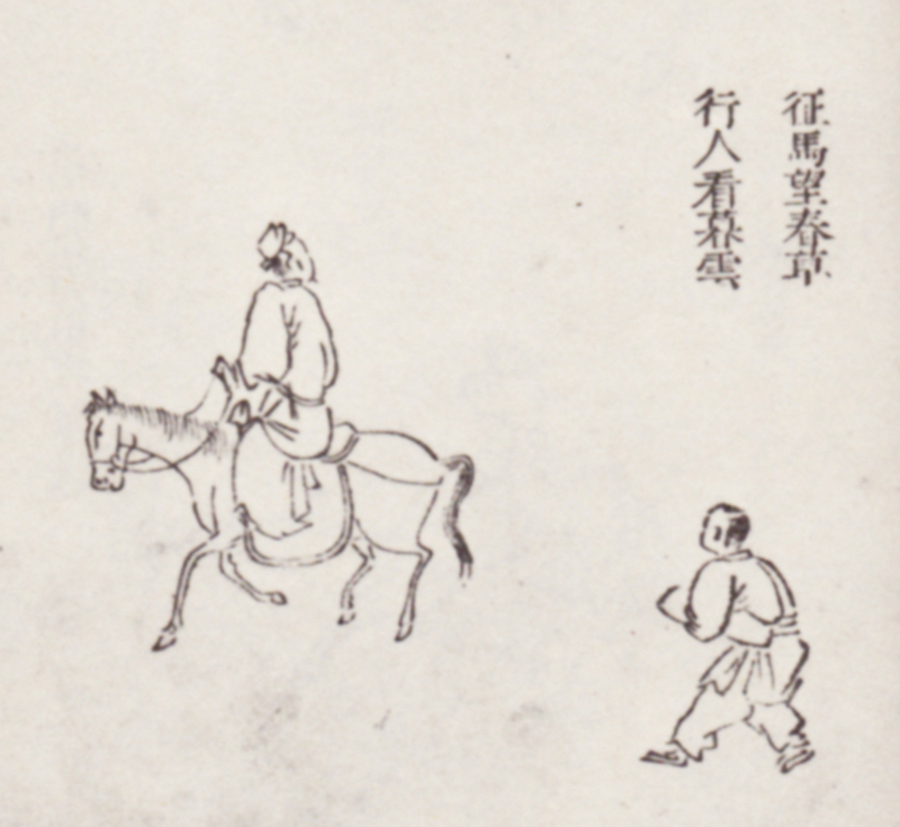 征馬望春草
行人看暮雲